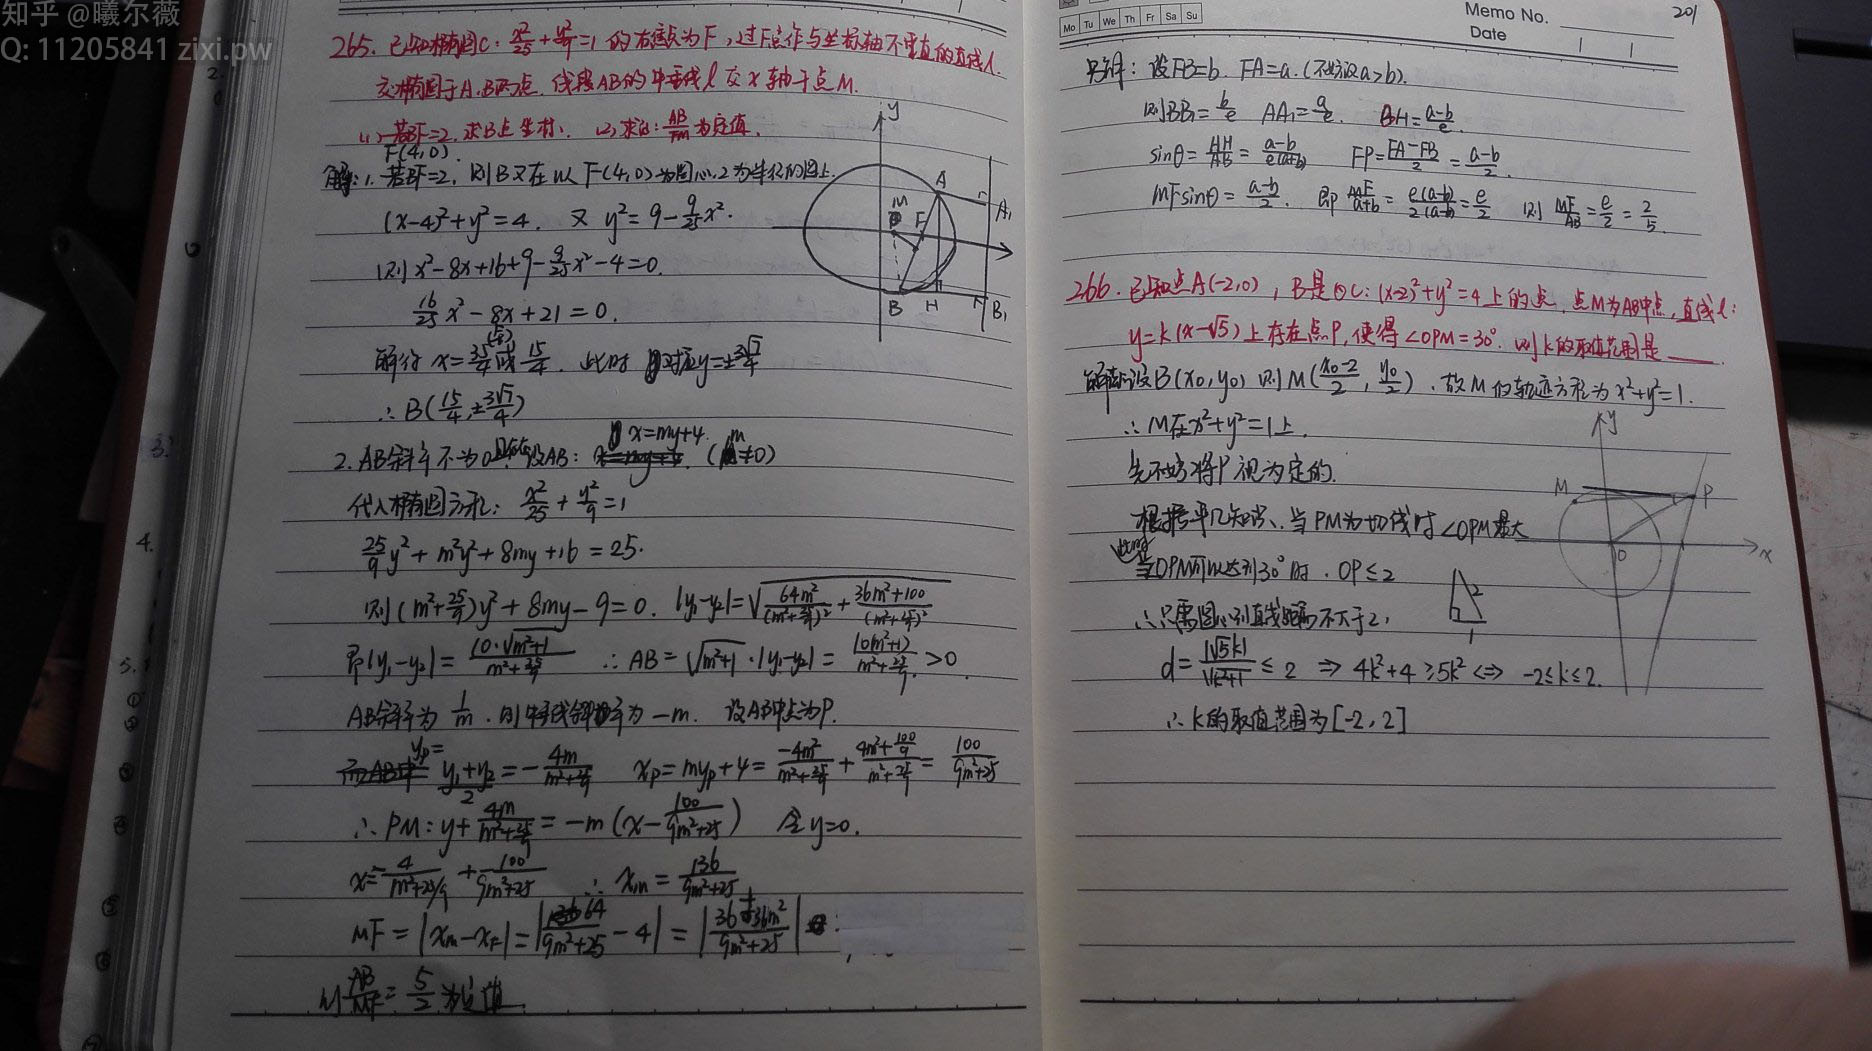 知乎 @曦尔薇
Q: 11205841 zixi.pw
265. 已知椭圆C: x²/25 + y²/9 = 1 的右焦点为F, 过F点作与坐标轴不垂直的直线l.
交椭圆于A.B两点. 线段AB的中垂线l交x轴于点M.
(1) 若BF=2. 求B点坐标. (2) 求证: AB/FM 为定值.
F(4,0).
解: 1. 若BF=2. 则B又在以F(4,0)为圆心,2为半径的圆上.
(x-4)²+y²=4. 又 y²=9-9/25x².
则 x²-8x+16+9-9/25x²-4=0.
16/25 x² - 8x + 21 = 0.
解得 x=35/4 (舍) 或 15/4. 此时 对应y=±3√7/4
∴ B(15/4, ±3√7/4)
2. AB斜率不为0 且存在 设AB: x=my+4. (m≠0)
代入椭圆方程: x²/25 + y²/9 = 1
25/9 y² + m²y² + 8my + 16 = 25.
则 (m²+25/9)y² + 8my - 9 = 0. |y₁-y₂| = √(64m²/(m²+25/9)² + (36m²+100)/(m²+25/9)²)
即|y₁-y₂| = 10·√(m²+1)/(m²+25/9) ∴ AB = √(m²+1)·|y₁-y₂| = 10(m²+1)/(m²+25/9) > 0.
AB斜率为 1/m. 则中垂线斜率为 -m. 设AB中点为P.
yp = (y₁+y₂)/2 = -4m/(m²+25/9) xp = myp+4 = -4m²/(m²+25/9) + (4m²+100/9)/(m²+25/9) = 100/(9m²+25)
∴ PM: y + 4m/(m²+25/9) = -m(x - 100/(9m²+25)) 令y=0.
x = -4/(m²+25/9) + 100/(9m²+25) ∴ xm = 136/(9m²+25)
MF = |xm-xF| = |64/(9m²+25) - 4| = |(36+36m²)/(9m²+25)|
则 AB/MF = 5/2 为定值.
y
A
A₁
M
F
B
H
B₁
Mo Tu We Th Fr Sa Su
Memo No.
Date
201
另解: 设FB=b. FA=a. (不妨设a>b).
则BB₁=b/e AA₁=a/e. AH=(a-b)/e.
sinθ=AH/AB=(a-b)/(e(a+b)) FP=(FA-FB)/2=(a-b)/2.
MFsinθ=(a-b)/2. 即 MF/(a+b)=e(a-b)/(2(a-b))=e/2 则 MF/AB=e/2=2/5.
266. 已知点A(-2,0), B是⊙C: (x-2)²+y²=4上的点. 点M为AB中点, 直线l:
y=k(x-√5) 上存在点P, 使得∠OPM=30°. 则k的取值范围是 ____.
解: 设B(x₀,y₀) 则M((x₀-2)/2, y₀/2). 故M的轨迹方程为x²+y²=1.
∴ M在x²+y²=1上.
先不妨将P视为定的.
根据平几知识、当PM为切线时∠OPM最大
当∠OPM可以达到30°时. OP≤2
∴ 只需圆心到直线距离不大于2.
d=|√5k|/√(k²+1) ≤ 2 ⇒ 4k²+4≥5k² ⇔ -2≤k≤2.
∴ k的取值范围为[-2,2]
y
M
P
O
x
2
1